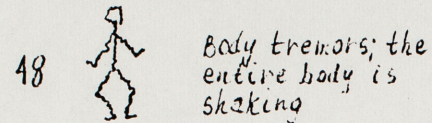 48
Body tremors; the
entire body is
shaking